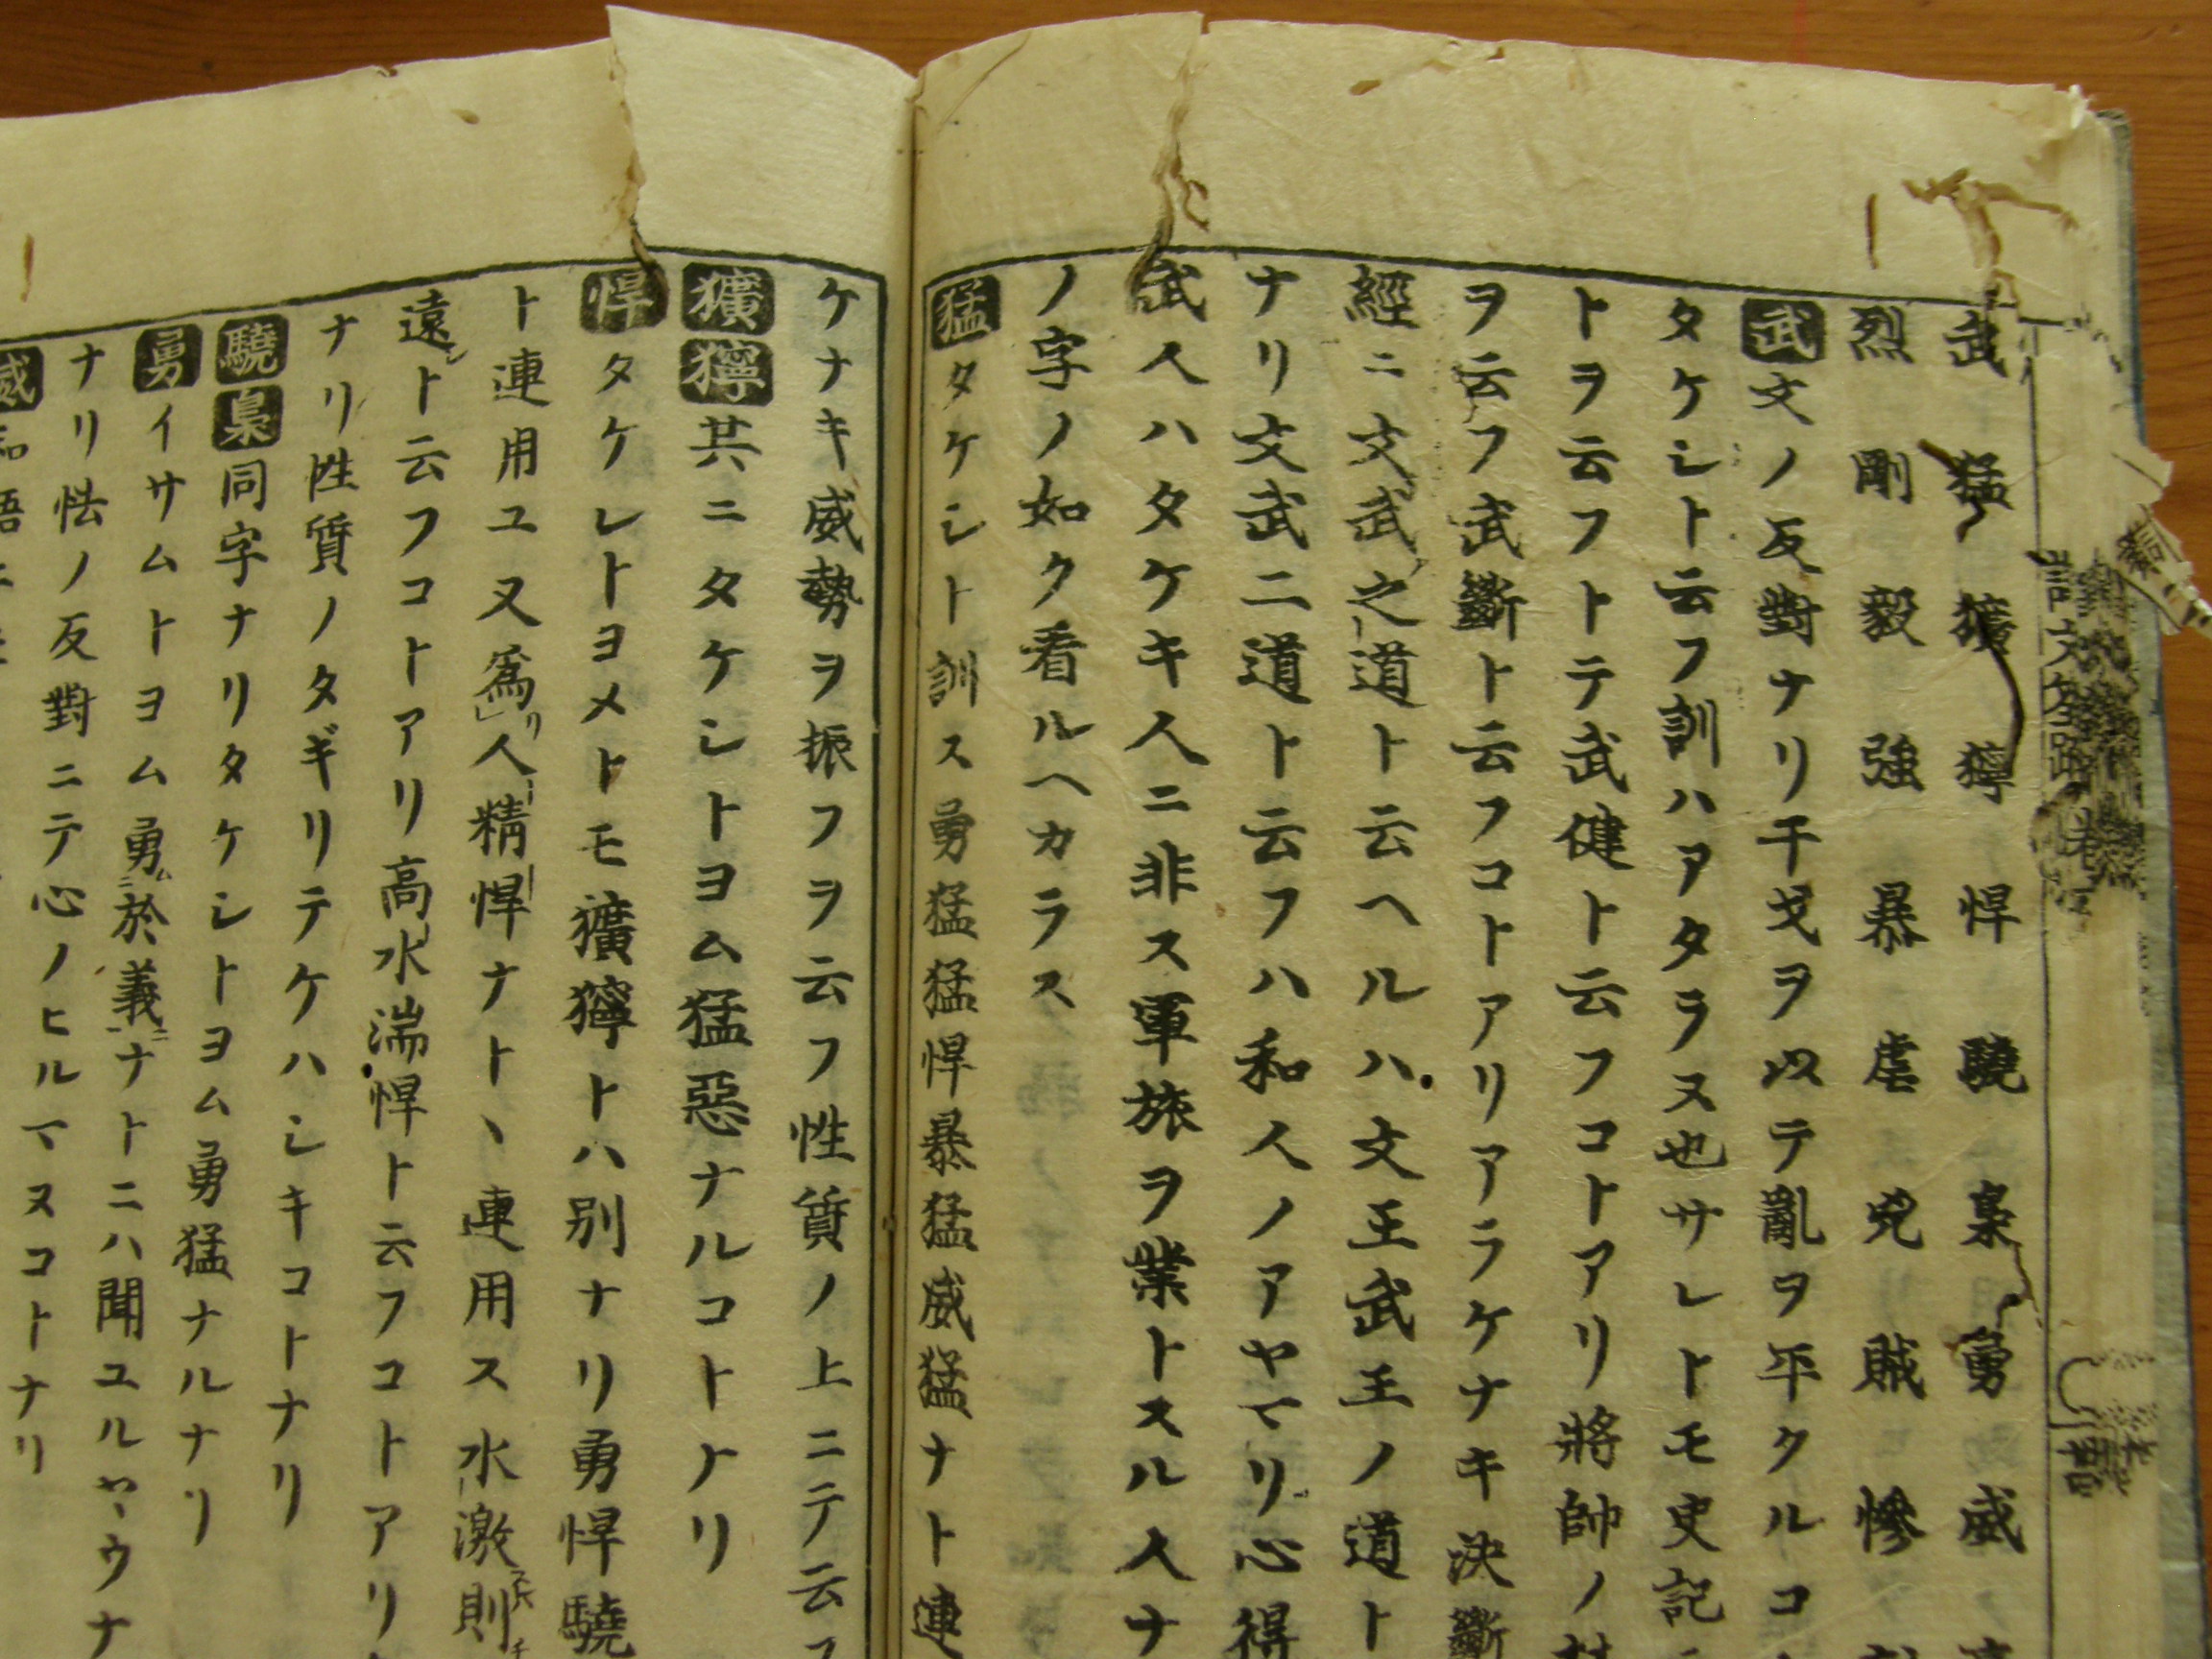 武猛獷獰悍驍梟勇威
烈剛毅強暴虐兇賊慘
武文ノ反對ナリ干戈ヲ以テ亂ヲ平クルコ
タケシト云フ訓ハアタラヌ也サレトモ史記
トヲ云フトテ武健ト云フコトアリ將帥ノ
ヲ云フ武斷ト云フコトアリアラケナキ決斷
經ニ文武之道ト云ヘルハ文王武王ノ道ト
ナリ文武二道ト云フハ和人ノアヤマリ心得
武人ハタケキ人ニ非ス軍旅ヲ業トスル人ナ
ノ字ノ如ク看ルヘカラス
猛タケシト訓ス勇猛猛悍暴猛威猛ナト連
ケナキ威勢ヲ振フヲ云フ性質ノ上ニテ云フ
獷獰共ニタケシトヨム猛惡ナルコトナリ
悍タケレトヨメトモ獷獰トハ別ナリ勇悍驍
ト連用ユ又爲リ人精悍ナトヽ連用ス水激則
遠シト云フコトアリ高水湍悍ト云フコトアリ
ナリ性質ノタギリテケハシキコトナリ
驍梟同字ナリタケシトヨム勇猛ナルナリ
勇イサムトヨム勇ム於義ニナトニハ聞ユルヤウナ
ナリ怯ノ反對ニテ心ノヒルマヌコトナリ
威和語ニ